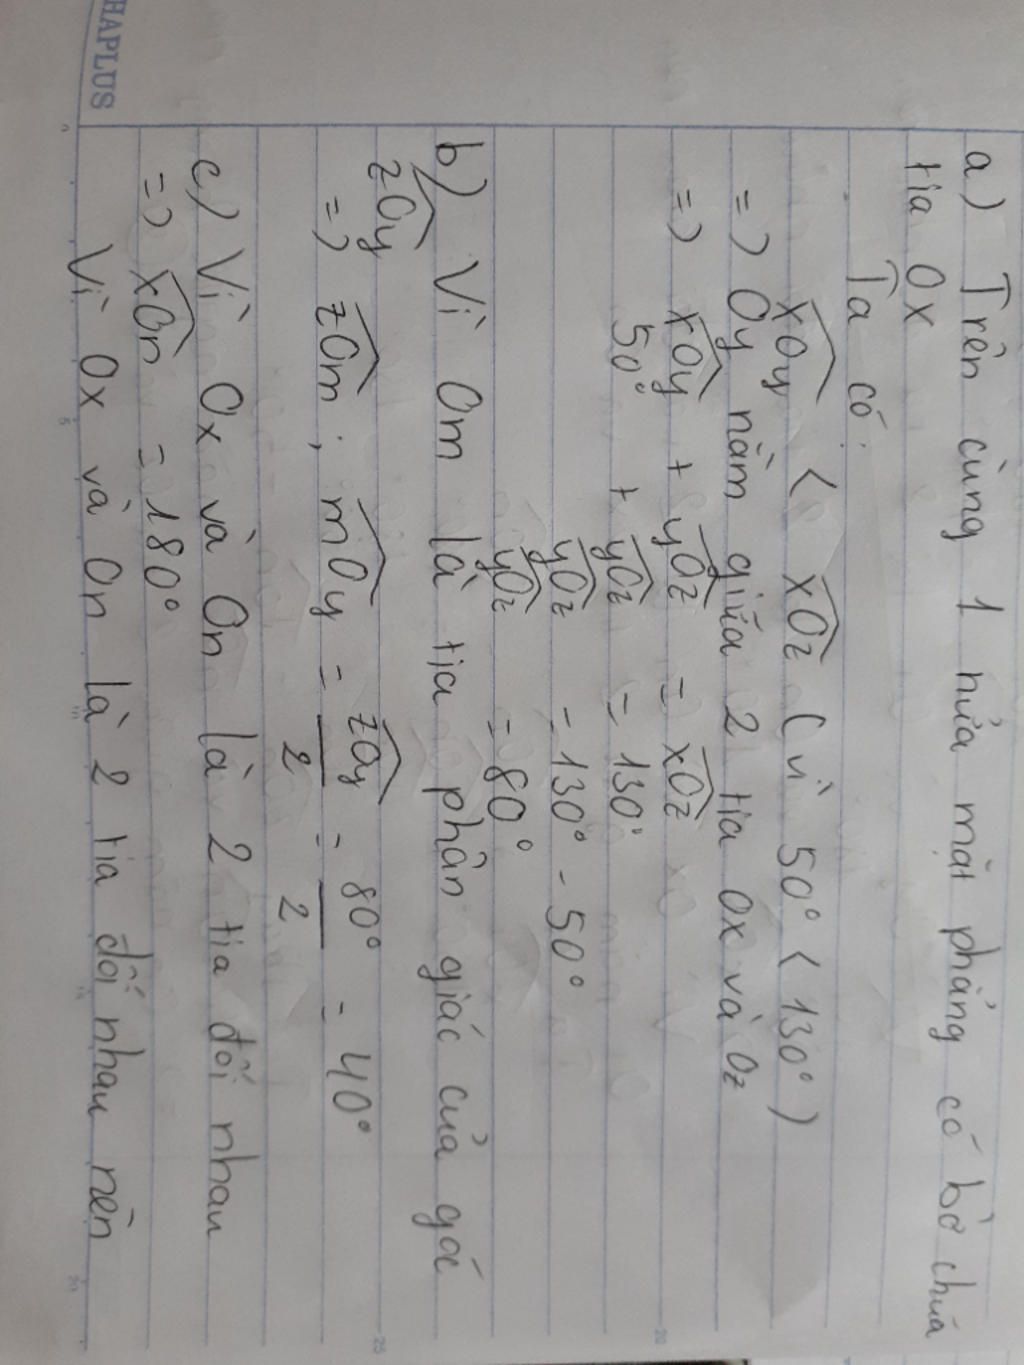 HAPLUS
a) Trên cùng 1 nửa mặt phẳng có bờ chứa
tia Ox
Ta có:
xOy < xOz (vì 50° < 130°)
=) Oy nằm giữa 2 tia Ox và Oz
=) xOy + yOz = xOz
50° + yOz = 130°
yOz = 130° - 50°
yOz = 80°
b) Vì Om là tia phân giác của góc
zOy
=) zOm ; mOy = zOy/2 = 80°/2 = 40°
c) Vì Ox và On là 2 tia đối nhau
=) xOn = 180°
Vì Ox và On là 2 tia đối nhau nên